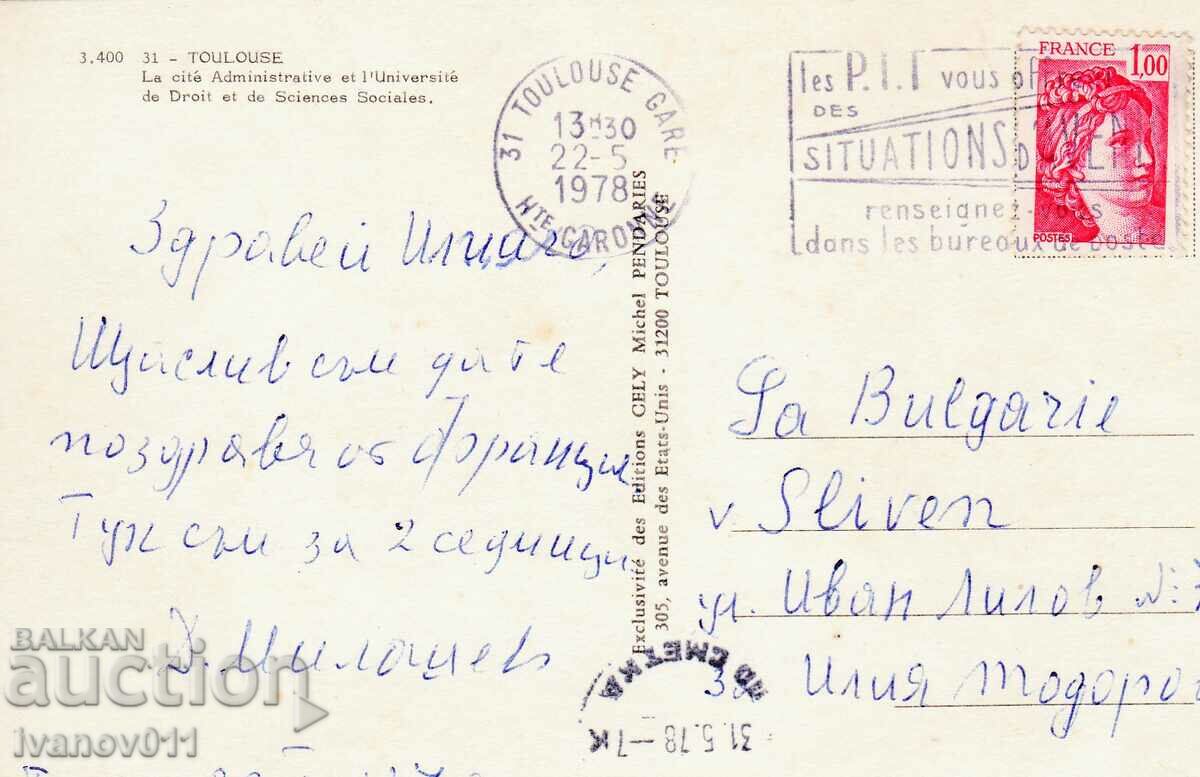 3,400 31 - TOULOUSE
La cité Administrative et l'Université
de Droit et de Sciences Sociales.
31 TOULOUSE GARE
13H30
22-5
1978
HTE GARONNE
les P.T.T vous offrent
DES
SITUATIONS D'AVENIR
renseignez-vous
dans les bureaux de poste
FRANCE 1,00
POSTES
Здравей Илиа,
Щислив съм да те
поздравя от Франция,
Тук съм за 2 седмици
Д. Милашев
Exclusivité des Editions CELY Michel PENDARIES
305, avenue des Etats-Unis - 31200 TOULOUSE
La Bulgarie
v Sliven
ул. Иван Лилов №: 7
За Илия Тодоров
31.5.78-7К
BALKAN
auction
ivanov011